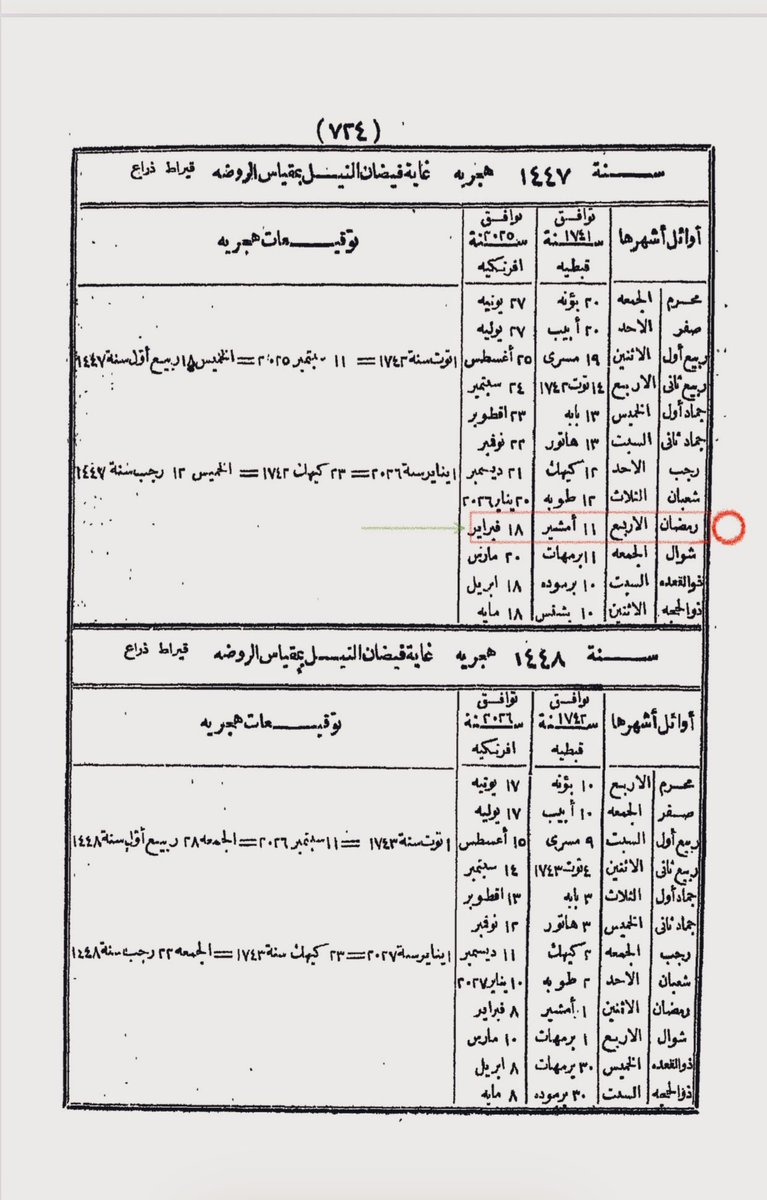 (٧٢٤)
سنة ١٤٤٧ هجريه غاية فيضان النيل بمقياس الروضه قيراط ذراع
أوائل أشهرها توافق سنة ١٧٤١ قبطيه توافق سنة ٢٠٢٥ افرنكيه توقيعات هجريه
محرم الجمعه ٢٠ بؤنه ٢٧ يونيه
صفر الاحد ٢٠ أبيب ٢٧ يوليه
ربيع أول الاثنين ١٩ مسرى ٢٥ أغسطس ١ توت سنة ١٧٤٢ = ١١ سبتمبر ٢٠٢٥ = الخميس ١٨ ربيع أول سنة ١٤٤٧
ربيع ثانى الاربع ١٤ توت ١٧٤٢ ٢٤ سبتمبر
جماد أول الخميس ١٣ بابه ٢٣ اقطوبر
جماد ثانى السبت ١٣ هاتور ٢٢ نوفبر
رجب الاحد ١٢ كيهك ٢١ ديسمبر ١ يناير سنة ٢٠٢٦ = ٢٣ كيهك ١٧٤٢ = الخميس ١٢ رجب سنة ١٤٤٧
شعبان الثلاث ١٢ طوبه ٢٠ يناير ٢٠٢٦
رمضان الاربع ١١ أمشير ١٨ فبراير
شوال الجمعه ١١ برمهات ٢٠ مارس
ذوالقعده السبت ١٠ برموده ١٨ ابريل
ذوالحجه الاثنين ١٠ بشنس ١٨ مايه
سنة ١٤٤٨ هجريه غاية فيضان النيل بمقياس الروضه قيراط ذراع
أوائل أشهرها توافق سنة ١٧٤٢ قبطيه توافق سنة ٢٠٢٦ افرنكيه توقيعات هجريه
محرم الاربع ١٠ بؤنه ١٧ يونيه
صفر الجمعه ١٠ أبيب ١٧ يوليه
ربيع أول السبت ٩ مسرى ١٥ أغسطس ١ توت سنة ١٧٤٣ = ١١ سبتمبر ٢٠٢٦ = الجمعه ٢٨ ربيع أول سنة ١٤٤٨
ربيع ثانى الاثنين ٤ توت ١٧٤٣ ١٤ سبتمبر
جماد أول الثلاث ٣ بابه ١٣ اقطوبر
جماد ثانى الخميس ٣ هاتور ١٢ نوفبر
رجب الجمعه ٢ كيهك ١١ ديسمبر ١ يناير سنة ٢٠٢٧ = ٢٣ كيهك سنة ١٧٤٣ = الجمعه ٢٢ رجب سنة ١٤٤٨
شعبان الاحد ٢ طوبه ١٠ يناير ٢٠٢٧
رمضان الاثنين ١ أمشير ٨ فبراير
شوال الاربع ١ برمهات ١٠ مارس
ذوالقعده الخميس ٣٠ برمهات ٨ ابريل
ذوالحجه السبت ٣٠ برموده ٨ مايه